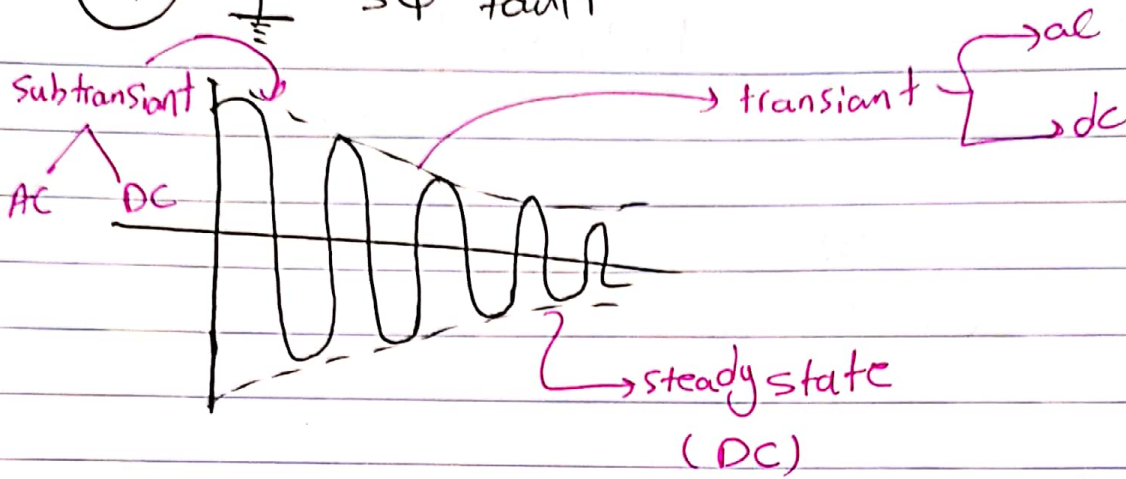 3φ fault
subtransiant
AC DC
transiant
ac
dc
steady state
(DC)